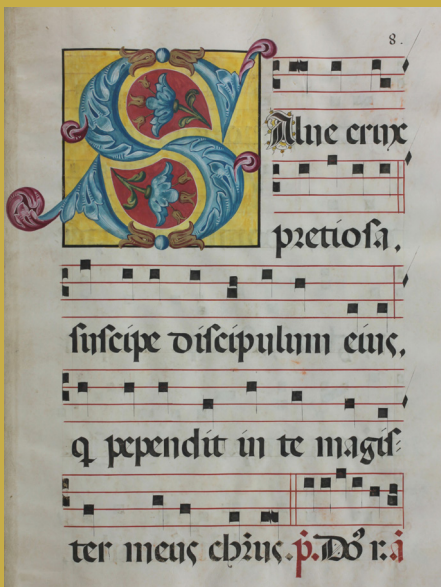 8.
SAlue crux
pretiosa,
suscipe discipulum eius,
q pependit in te magis-
ter meus chr̄us. p̄. Do r. a